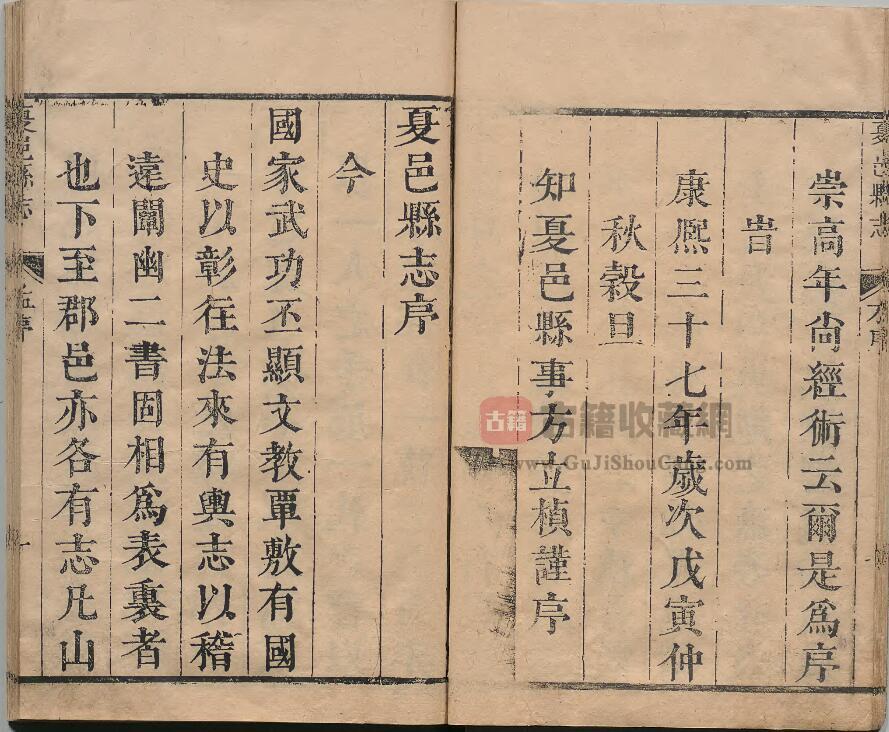 夏邑縣志
崇高年尙經術云爾是爲序
旹
康熈三十七年歲次戊寅仲
秋穀旦
知夏邑縣事方立楨謹序
夏邑縣志序
今
國家武功丕顯文教覃敷有國
史以彰徃法來有輿志以稽
遠闡幽二書固相爲表裏者
也下至郡邑亦各有志凡山
夏邑縣志
古籍 古籍收藏網
www.GuJiShouCang.com